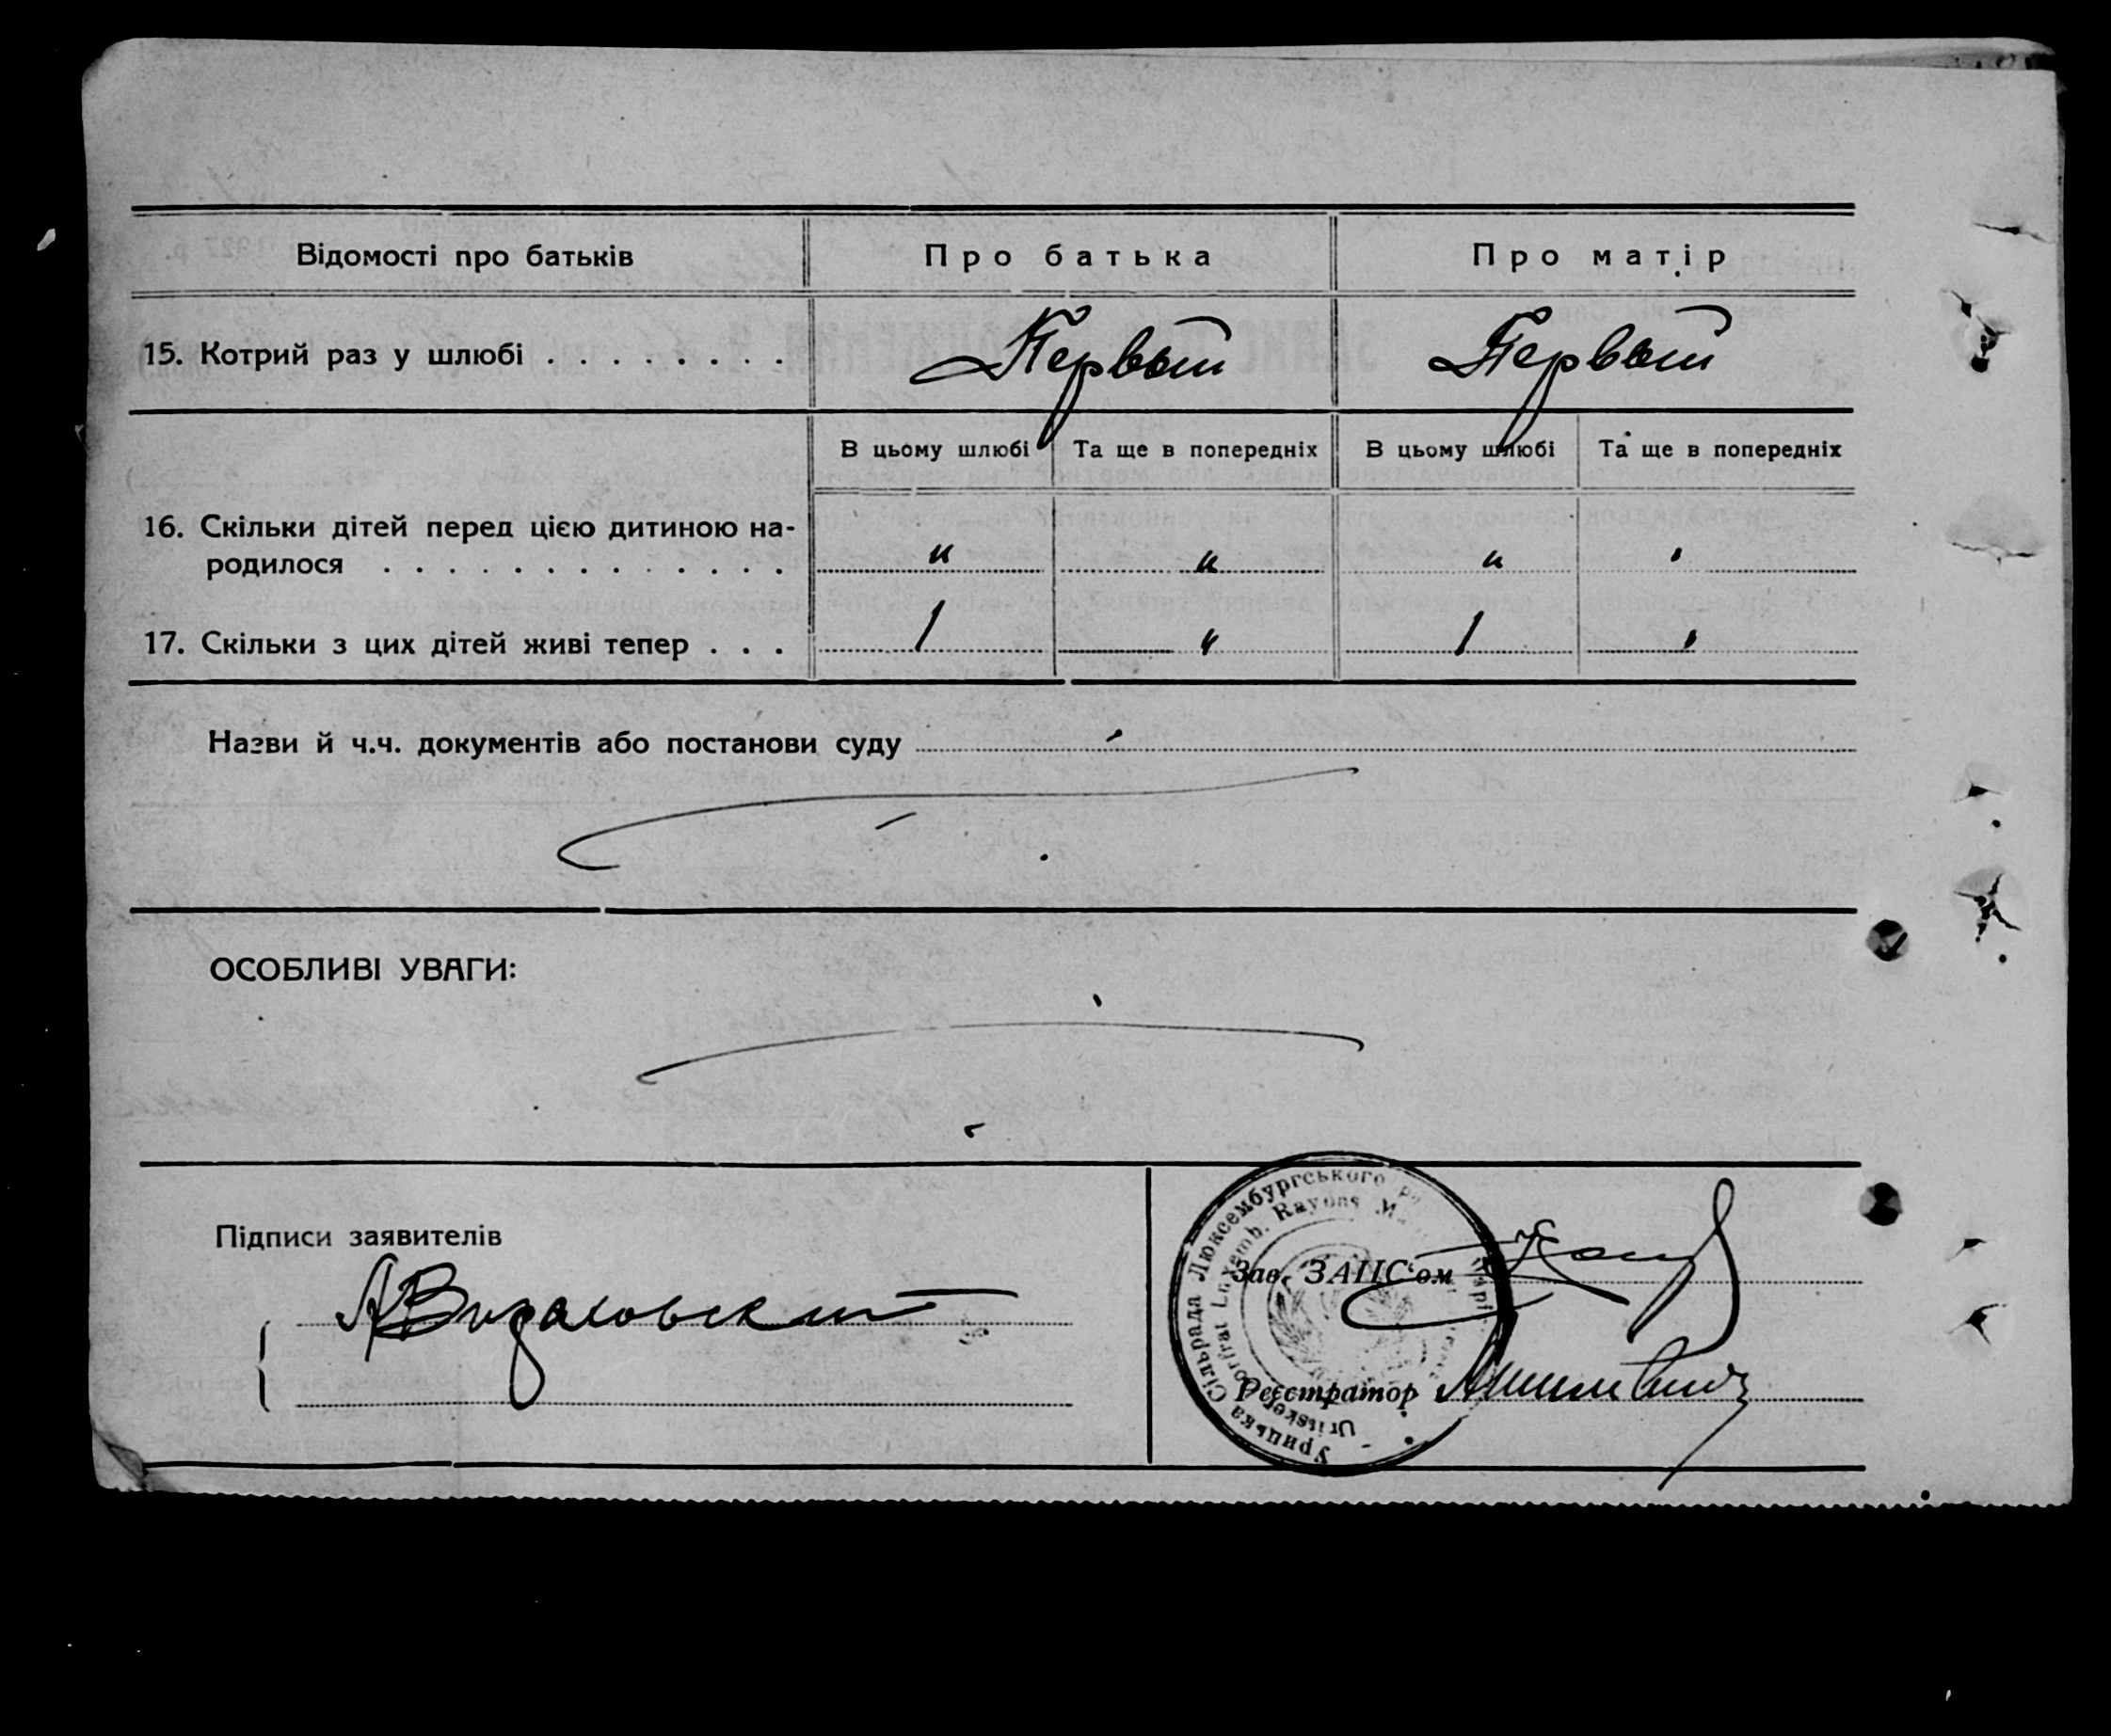 Відомості про батьків
Про батька
Про матір
15. Котрий раз у шлюбі . . . . . . . .
Первый
Первый
В цьому шлюбі
Та ще в попередніх
В цьому шлюбі
Та ще в попередніх
16. Скільки дітей перед цією дитиною на-
родилося . . . . . . . . . . . . .
"
"
"
17. Скільки з цих дітей живі тепер . . .
1
"
1
Назви й ч.ч. документів або постанови суду
ОСОБЛИВІ УВАГИ:
Підписи заявителів
Зав. ЗАПС'ом
Реєстратор
Урицька Сільрада Люксембургського
Luxemb. Rayons